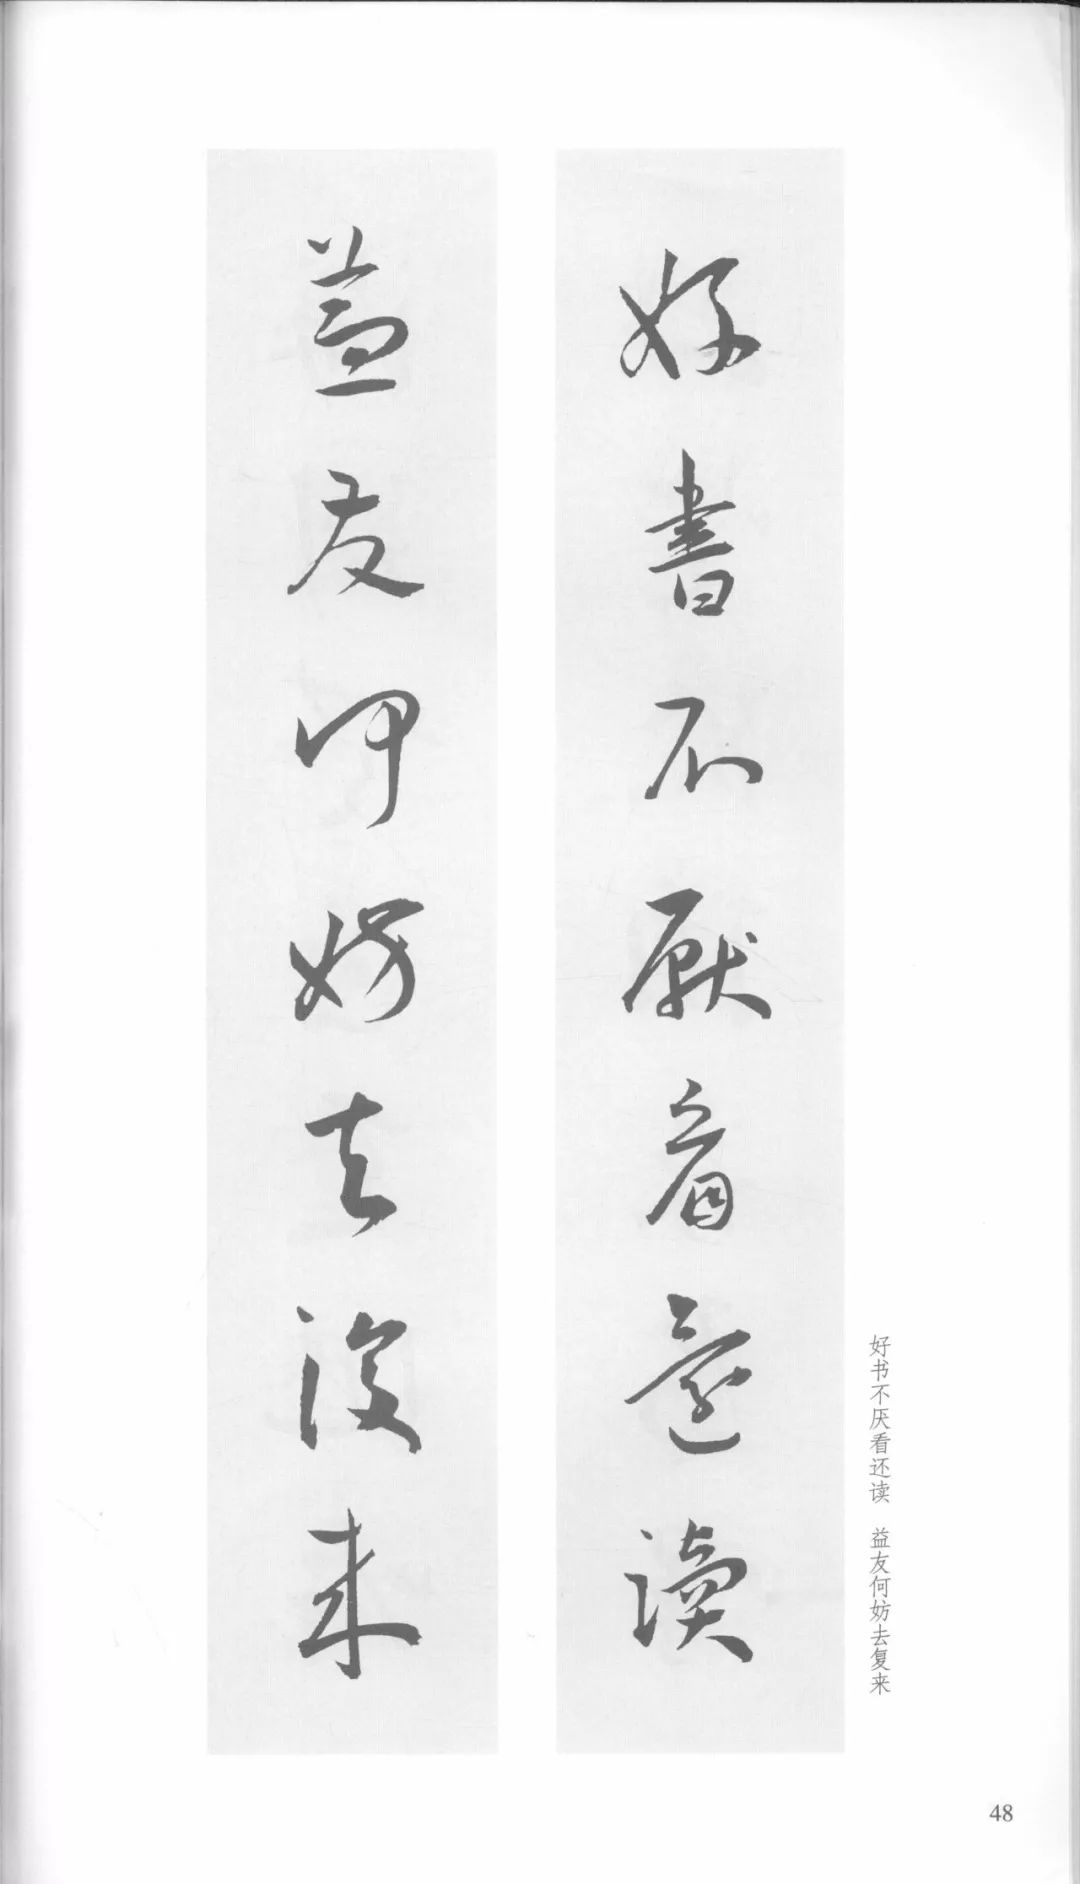 好書不厭看還讀
益友何妨去復来
好书不厌看还读 益友何妨去复来
48